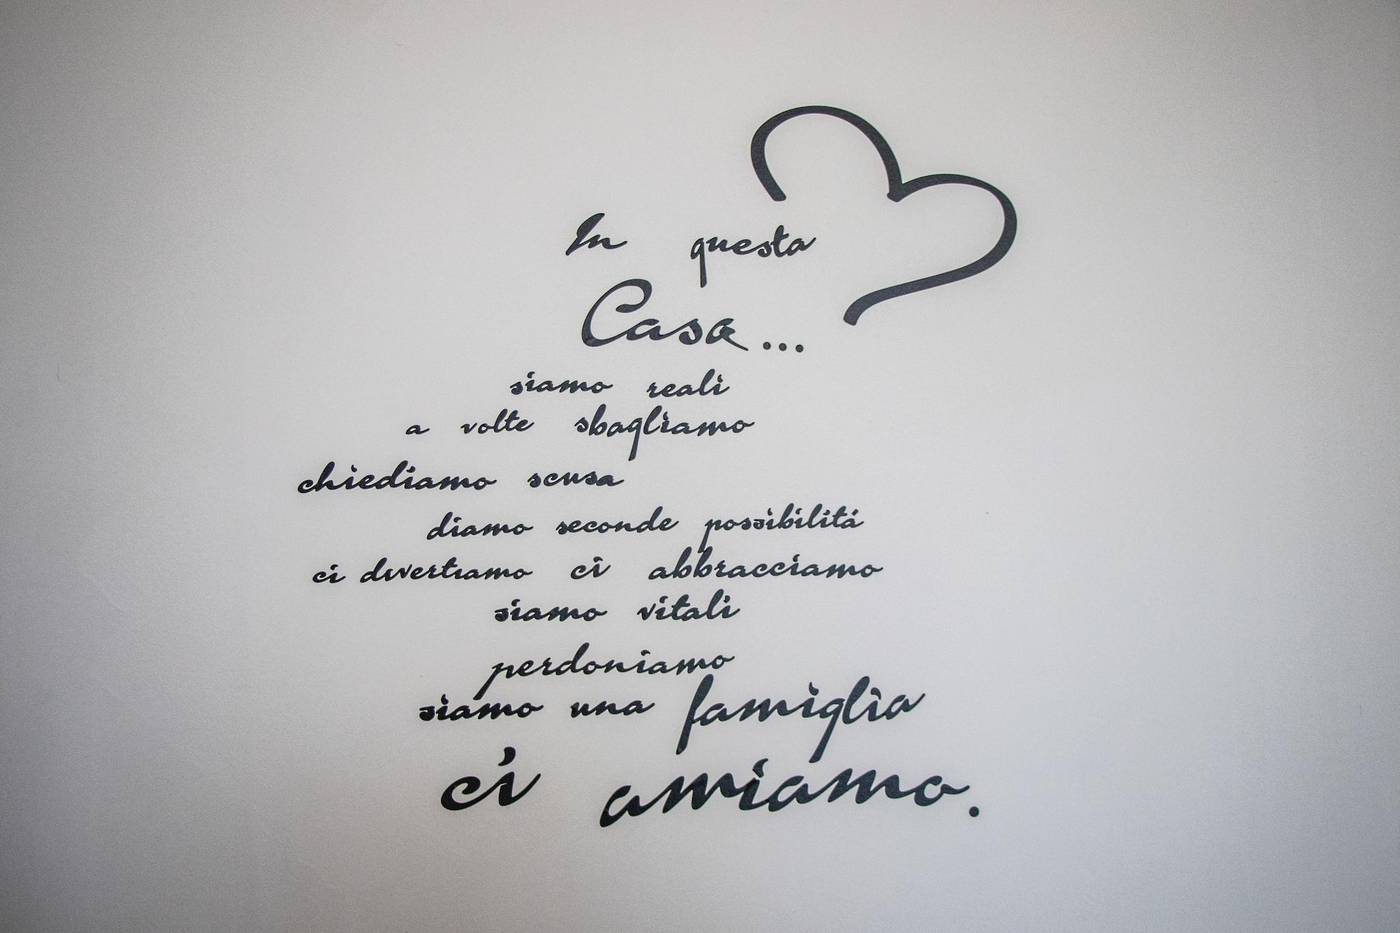 In questa
Casa...
siamo reali
a volte sbagliamo
chiediamo scusa
diamo seconde possibilitá
ci divertiamo ci abbracciamo
siamo vitali
perdoniamo
siamo una famiglia
ci amiamo.